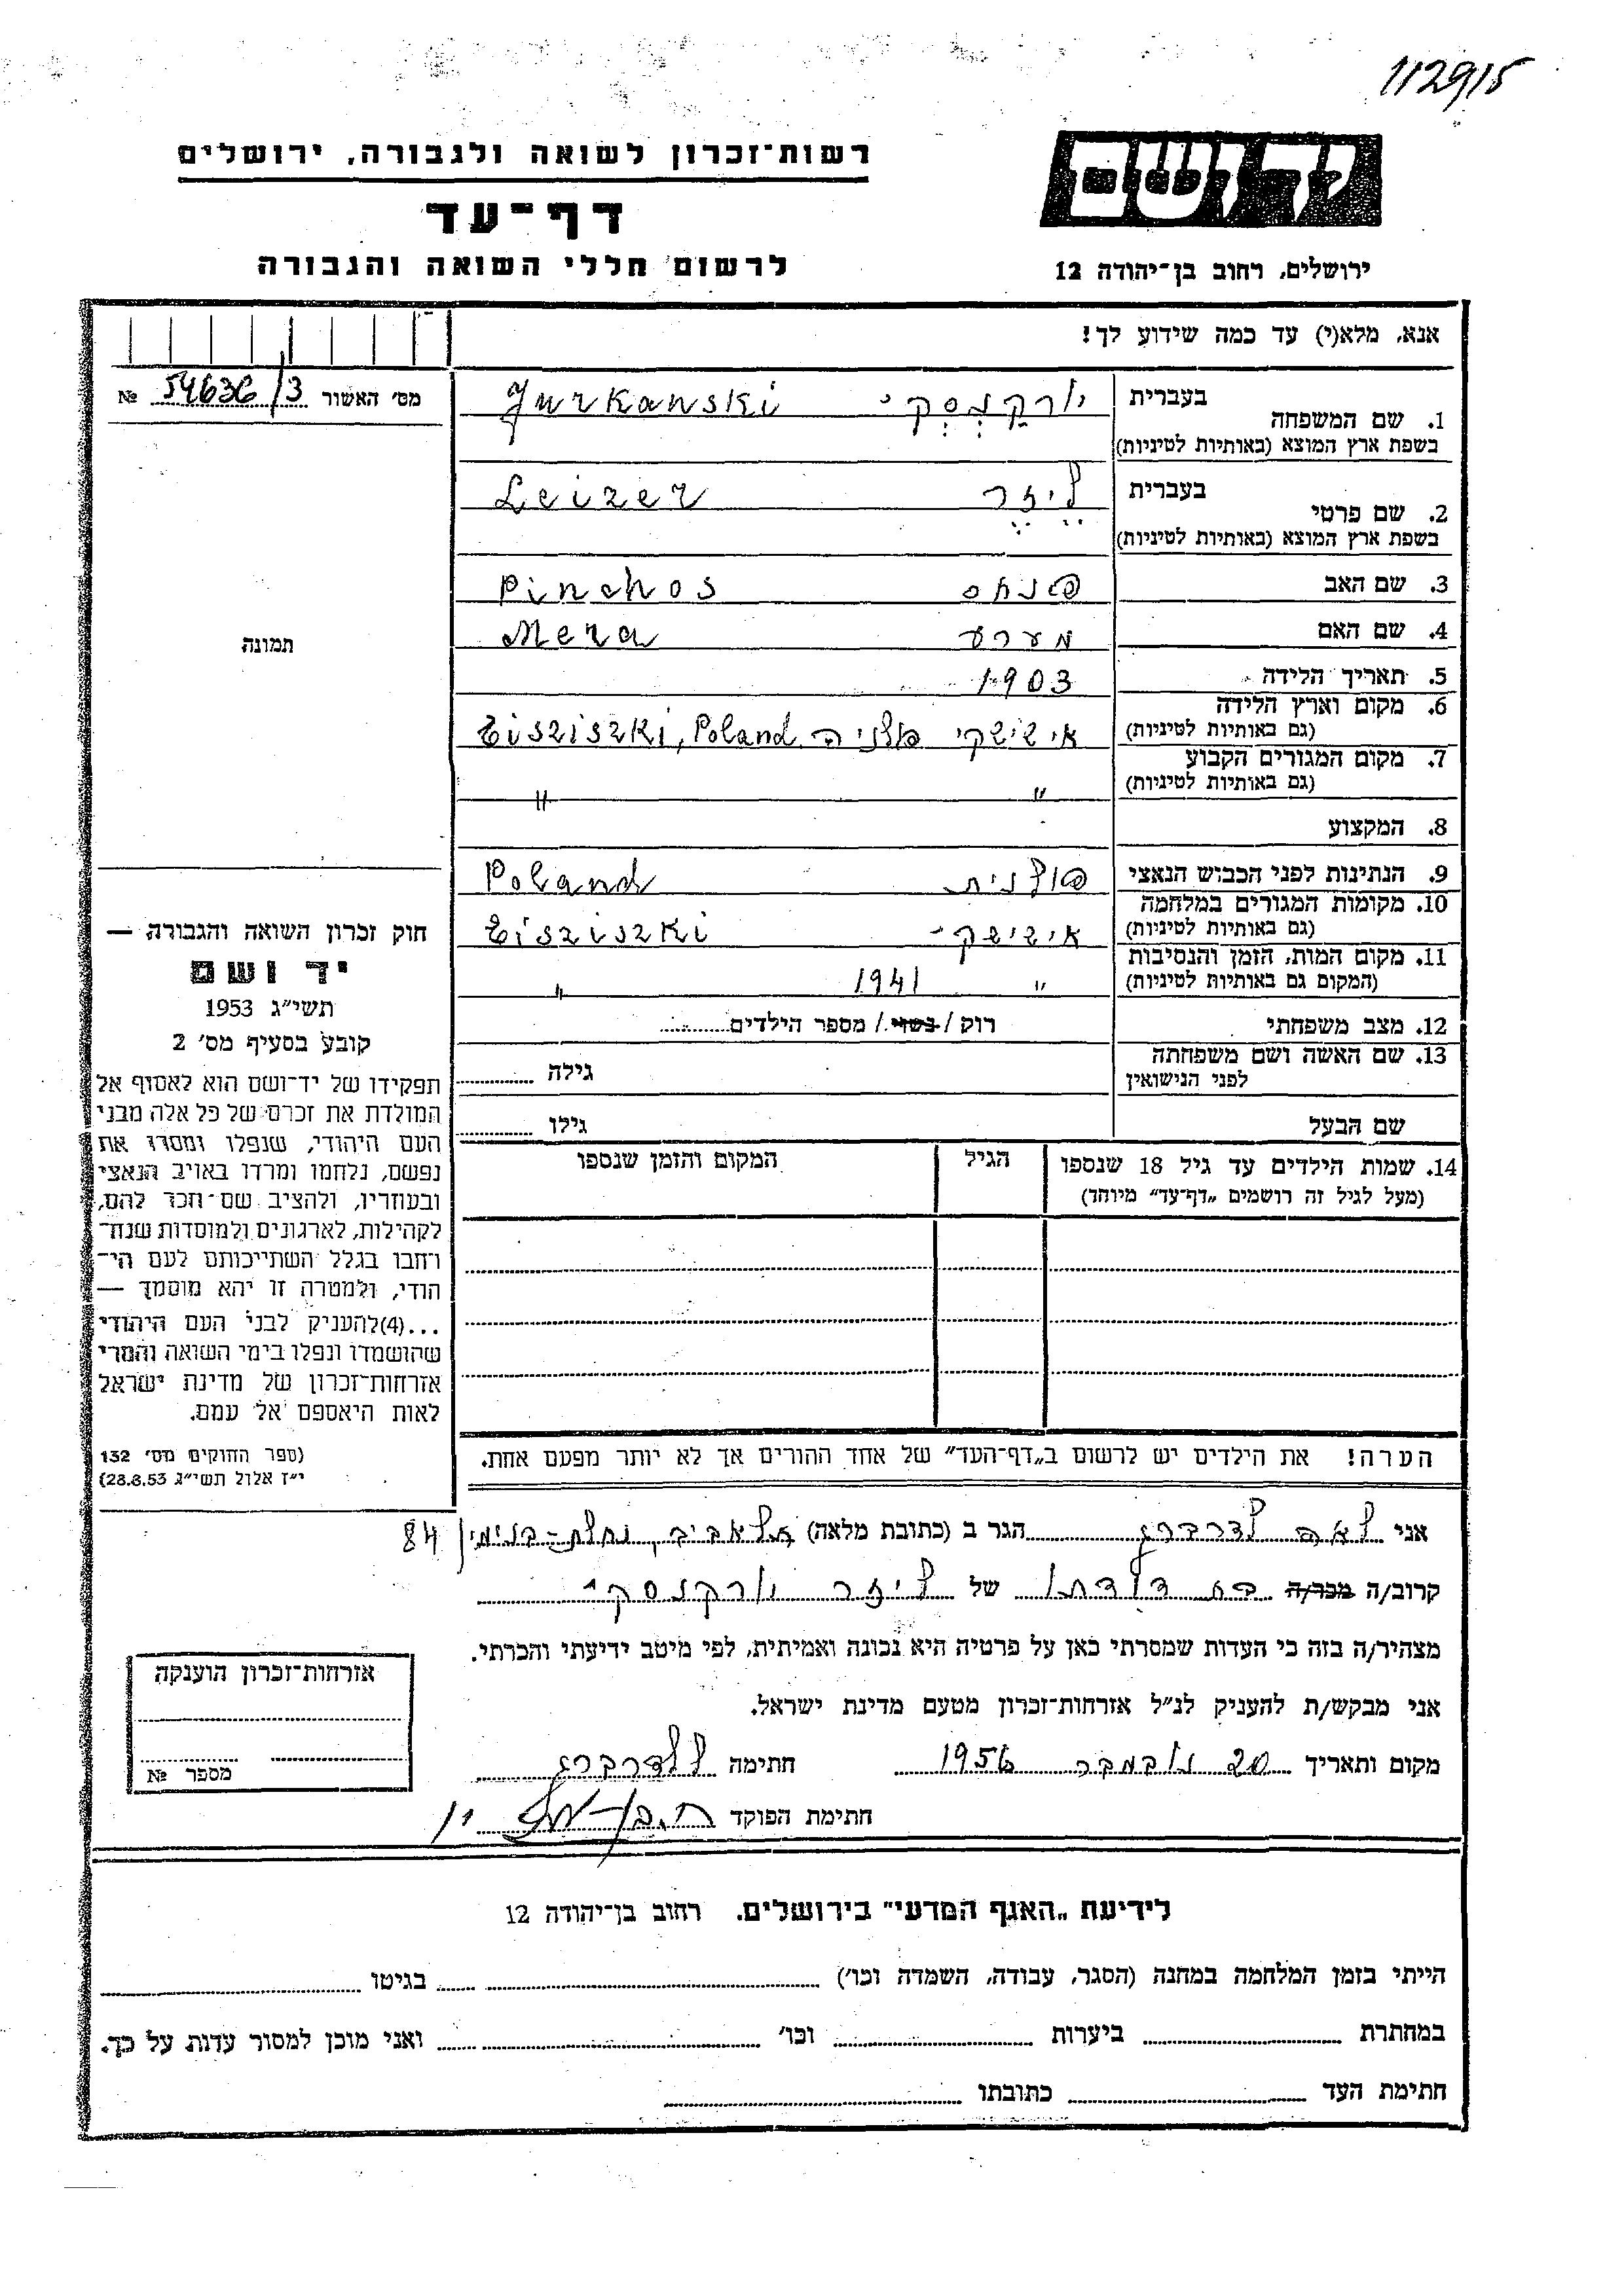 112915
רשות־זכרון לשואה ולגבורה, ירושלים
יד ושם
דף־עד
לרשום חללי השואה והגבורה
ירושלים, רחוב בן־יהודה 12
אנא, מלא(י) עד כמה שידוע לך!
מס׳ האשור 54636/3 №
1. שם המשפחה בעברית יורקנסקי Jurkanski
בשפת ארץ המוצא (באותיות לטיניות)
2. שם פרטי בעברית לייזר Leizer
בשפת ארץ המוצא (באותיות לטיניות)
3. שם האב פנחס Pinchos
4. שם האם מערע Mera
תמונה
5. תאריך הלידה 1903
6. מקום וארץ הלידה אישישקי פולניה Eisziszki, Poland
(גם באותיות לטיניות)
7. מקום המגורים הקבוע
(גם באותיות לטיניות) " "
8. המקצוע
9. הנתינות לפני הכבוש הנאצי פולנית Poland
10. מקומות המגורים במלחמה
(גם באותיות לטיניות) אישישקי Eisziszki
11. מקום המות, הזמן והנסיבות
(המקום גם באותיות לטיניות) " 1941 "
12. מצב משפחתי רוק / נשוי / מספר הילדים
13. שם האשה ושם משפחתה
לפני הנישואין גילה
שם הבעל גילו
14. שמות הילדים עד גיל 18 שנספו הגיל המקום והזמן שנספו
(מעל לגיל זה רושמים „דף־עד” מיוחד)
חוק זכרון השואה והגבורה —
יד ושם
תשי״ג 1953
קובע בסעיף מס׳ 2
תפקידו של יד־ושם הוא לאסוף אל
המולדת את זכרם של כל אלה מבני
העם היהודי, שנפלו ומסרו את
נפשם, נלחמו ומרדו באויב הנאצי
ובעוזריו, ולהציב שם־וזכר להם,
לקהילות, לארגונים ולמוסדות שנח־
רחבו בגלל השתייכותם לעם הי־
הודי, ולמטרה זו יהא מוסמך —
...(4)להעניק לבני העם היהודי
שהושמדו ונפלו בימי השואה והמרי
אזרחות־זכרון של מדינת ישראל
לאות היאספם אל עמם.
(ספר החוקים מס׳ 132
י״ז אלול תשי״ג 28.8.53)
הערה! את הילדים יש לרשום ב„דף־העד” של אחד ההורים אך לא יותר מפעם אחת.
אני לאה לדרברג הגר ב (כתובת מלאה) תל אביב, נחלת-בנימין 84
קרוב/ה מכר/ה בת דודתו של לייזר יורקנסקי
מצהיר/ה בזה כי העדות שמסרתי כאן על פרטיה היא נכונה ואמיתית, לפי מיטב ידיעתי והכרתי.
אני מבקש/ת להעניק לנ״ל אזרחות־זכרון מטעם מדינת ישראל.
מקום ותאריך 20 נובמבר 1956 חתימה ל לדרברג
חתימת הפוקד
אזרחות־זכרון הוענקה
מספר №
לידיעת „האגף המדעי” בירושלים. רחוב בן־יהודה 12
הייתי בזמן המלחמה במחנה (הסגר, עבודה, השמדה וכו׳) בגיטו
במחתרת ביערות וכו׳ ואני מוכן למסור עדות על כך.
חתימת העד כתובתו